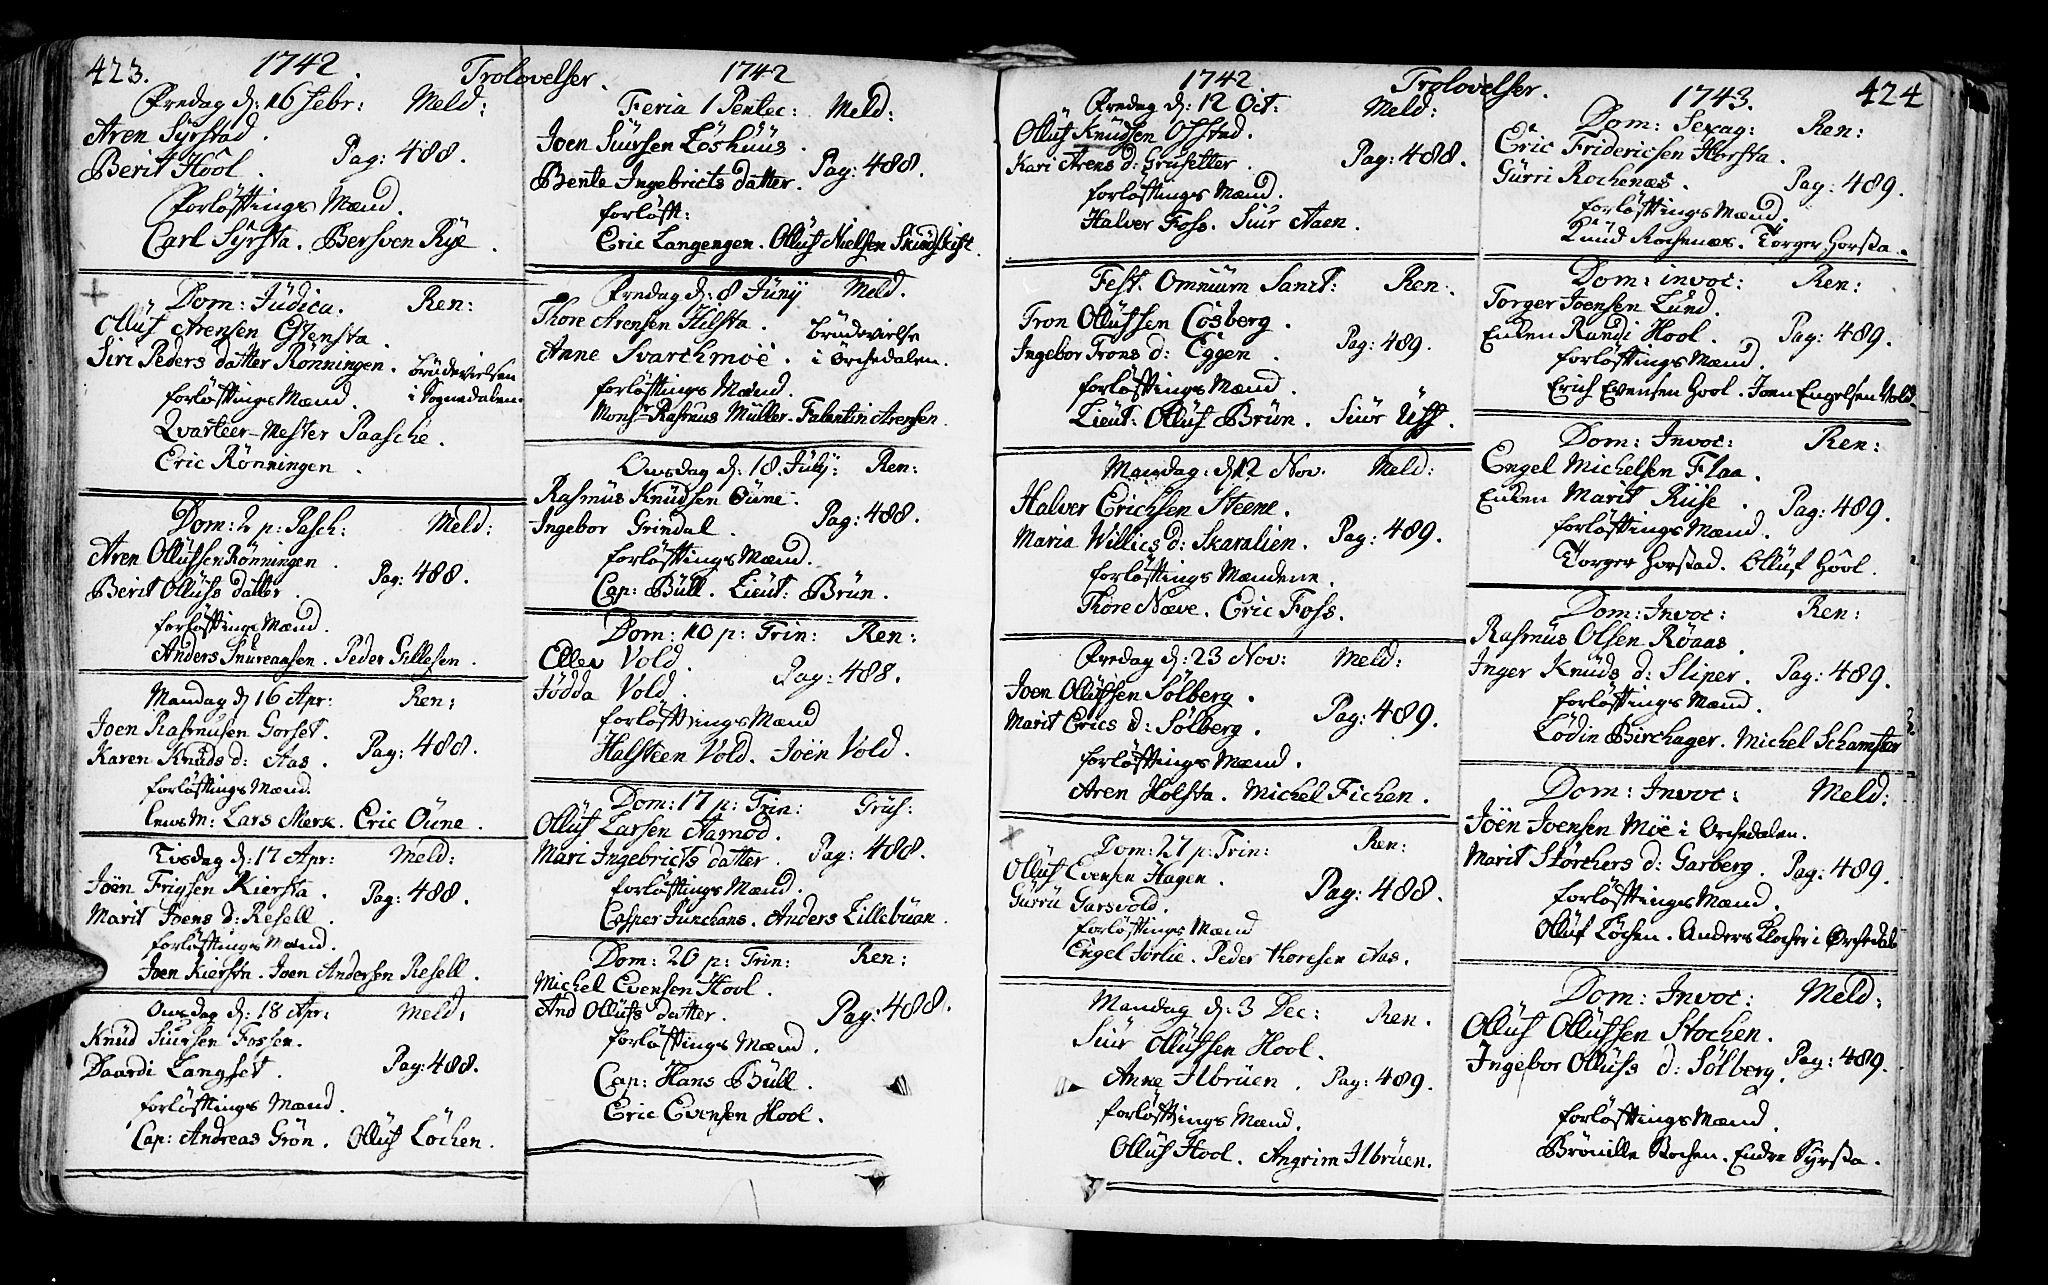 423. 1742. Trolovelser. 1742
Fredag d: 16 Febr: Meld:
Aren Syrstad.
Berit Hool. Pag: 488.
Forløftings Mænd.
Carl Syrsta. Bersven Rye.
Dom: Judica. Ren:
Olluf Arensen
Siri Peders datter Rönningen. brudevielsen
forløftings Mænd. i Sognedalen.
Qvarteer-Mester Paasche.
Eric Rönningen.
Dom: 2 p: Pasch: Meld:
Aren Ollufsen Rönningen.
Berit Ollufs datter. Pag: 488.
forløftings Mænd.
Anders . Peder Gillesen.
Mandag d 16 Apr: Ren:
Joen Rasmusen Gorset.
Karen Knuds d: Aas. Pag: 488.
forløftings Mænd.
Lars Merk. Eric Öune.
Tisdag d: 17 Apr: Meld:
Joën Frigsen Kiersta.
Marit Joens d: Resell. Pag: 488.
forløftings Mænd.
Joen Kiersta. Joen Andersen Resell.
Onsdag d: 18 Apr: Meld:
Knud Siursen Fossen.
Daardi Langset. Pag: 488.
forløftings Mænd.
Cap: Andreas Grön. Olluf Löchen.
Feria 1 Pentec: Meld:
Joen Siursen Löshuus.
Bente Ingebricts datter. Pag: 488.
forløft:
Eric Langengen. Olluf Nielsen
Fredag d: 8 Junij Meld.
Thore Arensen Hilsta. brudevielse
Anne Svarthmoe. i Orchedalen.
forløftings Mænd.
Mons: Rasmus Müller. Falentin Arensen.
Onsdag d: 18. July: Ren:
Rasmus Knudsen Öune.
Ingebor Grindal. Pag: 488.
forløftings Mænd.
Cap: Büll. Lieut: Brün.
Dom: 10 p: Trin: Ren:
Ellev Vold.
Jödda Vold. Pag: 488.
forløftings Mænd
Halsteen Vold. Joën Vold.
Dom: 17 p: Trin: Grüs:
Olluf Larsen Aamod.
Mari Ingebricts datter Pag: 488.
forløftings Mænd.
Casper Junchans. Anders Lillebuan.
Dom: 20 p: Trin: Ren:
Michel Evensen Hool.
And Ollufs datter. Pag: 488.
forløftings Mænd.
Cap: Hans Büll.
Eric Evensen Hool.
1742 Trolovelser. 1743. 424
Fredag d: 12 Oct: Meld:
Olluf Knudsen Ofstad.
Kari Arens d: Gruseter. Pag: 488.
forløftings Mænd.
Halver Foss. Siur Aaen.
Fest. Omnium Sanct: Ren:
Tron Ollufsen Cosberg.
Ingebor Trons d: Eggen. Pag: 489.
forløftings Mænd.
Lieut: Olluf Brün. Siur Uff.
Mandag: d 12 Nov. Meld:
Halver Erichsen Steene.
Maria Willics d: Skaralien. Pag: 489.
forløftings Mændene.
Thore Næve. Eric Foss.
Fredag d: 23 Nov: Meld:
Joen Ollufsen Sölberg.
Marit Erics d: Sölberg. Pag: 489.
forløftings Mænd.
Aren Holsta. Michel Fichen.
Dom: 27 p: Trin: Ren:
Olluf Evensen Hagen.
Gurru Garsvold. Pag: 488.
forløftings Mænd
Engel Sorlie. Peder Thoresen Aas.
Mandag d: 3 Dec: Ren.
Siur Ollufsen Hool.
Anne Ilbrüen. Pag: 489.
forløftings Mænd.
Olluf Hool. Angrim Ilbrüen.
Dom: Sexag: Ren:
Eric Fridericsen Horsta.
Gurri Rochenæs. Pag: 489.
forløftings Mænd.
Knud Rochenæs. Torger Horsta.
Dom: invoc: Ren:
Torger Joensen Lund.
Enken Randi Hool. Pag: 489.
forløftings Mænd.
Erich Evensen Hool. Joen Engelsen Vold.
Dom: Invoc: Ren:
Engel Michelsen Flaa.
Enken Marit Riise. Pag: 489.
forløftings Mænd.
Torger Horstad. Olluf Hool.
Dom: Invoc: Ren:
Rasmus Olsen Röaas.
Inger Knuds d: Sliper. Pag: 489.
forløftings Mænd.
Lödin Birchager. Michel
Dom: Invoc: Meld:
Joën Joensen Möe i Orchedalen.
Marit Storchers d: Garberg. Pag: 489.
forløftings Mænd.
Olluf Löchen. Anders Klocker i Orchedal
Dom: Invoc: Meld:
Olluf Ollufsen Stochen.
Ingebor Ollufs d: Sölberg. Pag: 489.
forløftings Mænd.
Brönille Stochen. Endre Syrsta.